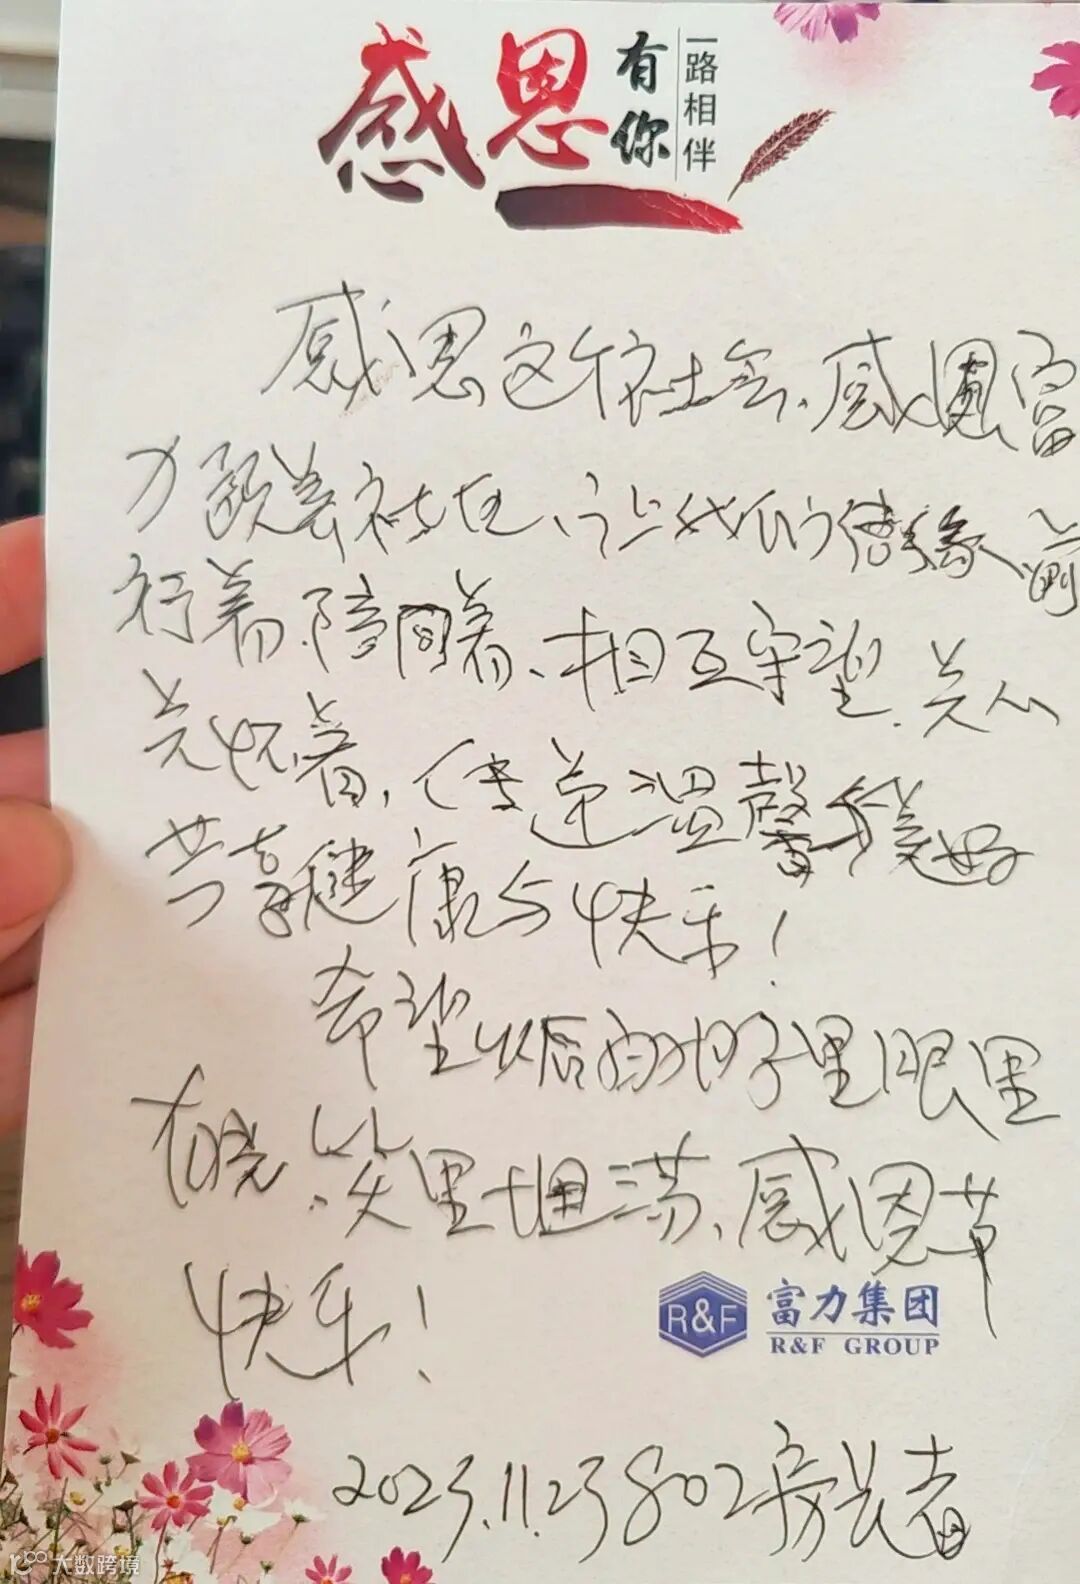 感恩有你
一路相伴
感恩这个社会、感恩富
力颐养社区、让我们携缘前
行着、陪同着、相互守望、关心
关怀着、传递温馨美好
共享健康与快乐！
希望以后的日子里眼里
有光、笑里坦荡、感恩节
快乐！
R&F 富力集团
R&F GROUP
2023.11.23 802房长者
大数跨境